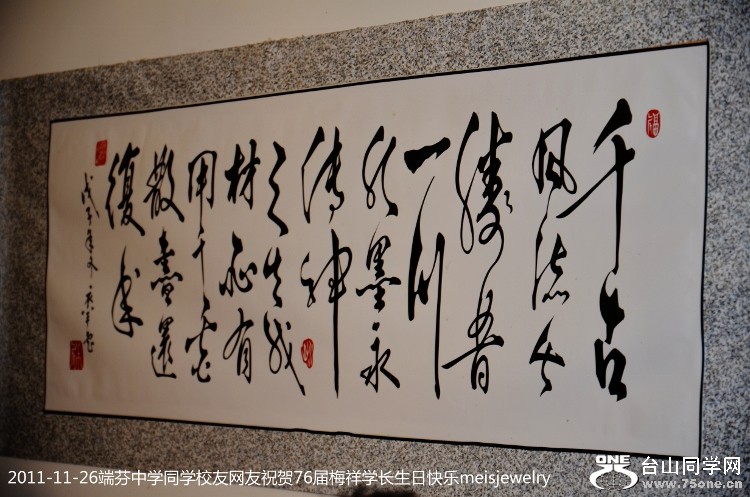 千古
風流今
勝昔
一川
水墨永
傳神
天生我
材必有
用千金
散盡還
復來
戊子年冬
福
2011-11-26端芬中学同学校友网友祝贺76届梅祥学长生日快乐meisjewelry
ONE 台山同学网
www.75one.cn